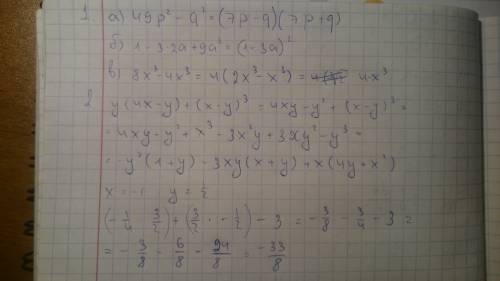 1. а) 49p² - q² = (7p - q)(7p + q)
б) 1 - 3·2a + 9a² = (1 - 3a)²
в) 8x³ - 4x³ = 4(2x³ - x³) = 4·x³
2. y(4x - y) + (x - y)³ = 4xy - y² + (x - y)³ =
= 4xy - y² + x³ - 3x²y + 3xy² - y³ =
= -y²(1 + y) - 3xy(x + y) + x(4y + x²)
x = -1 y = ½
+ - 3 = - 3/8 - 3/4 - 3 =
= - 3/8 - 6/8 - 24/8 = -33/8